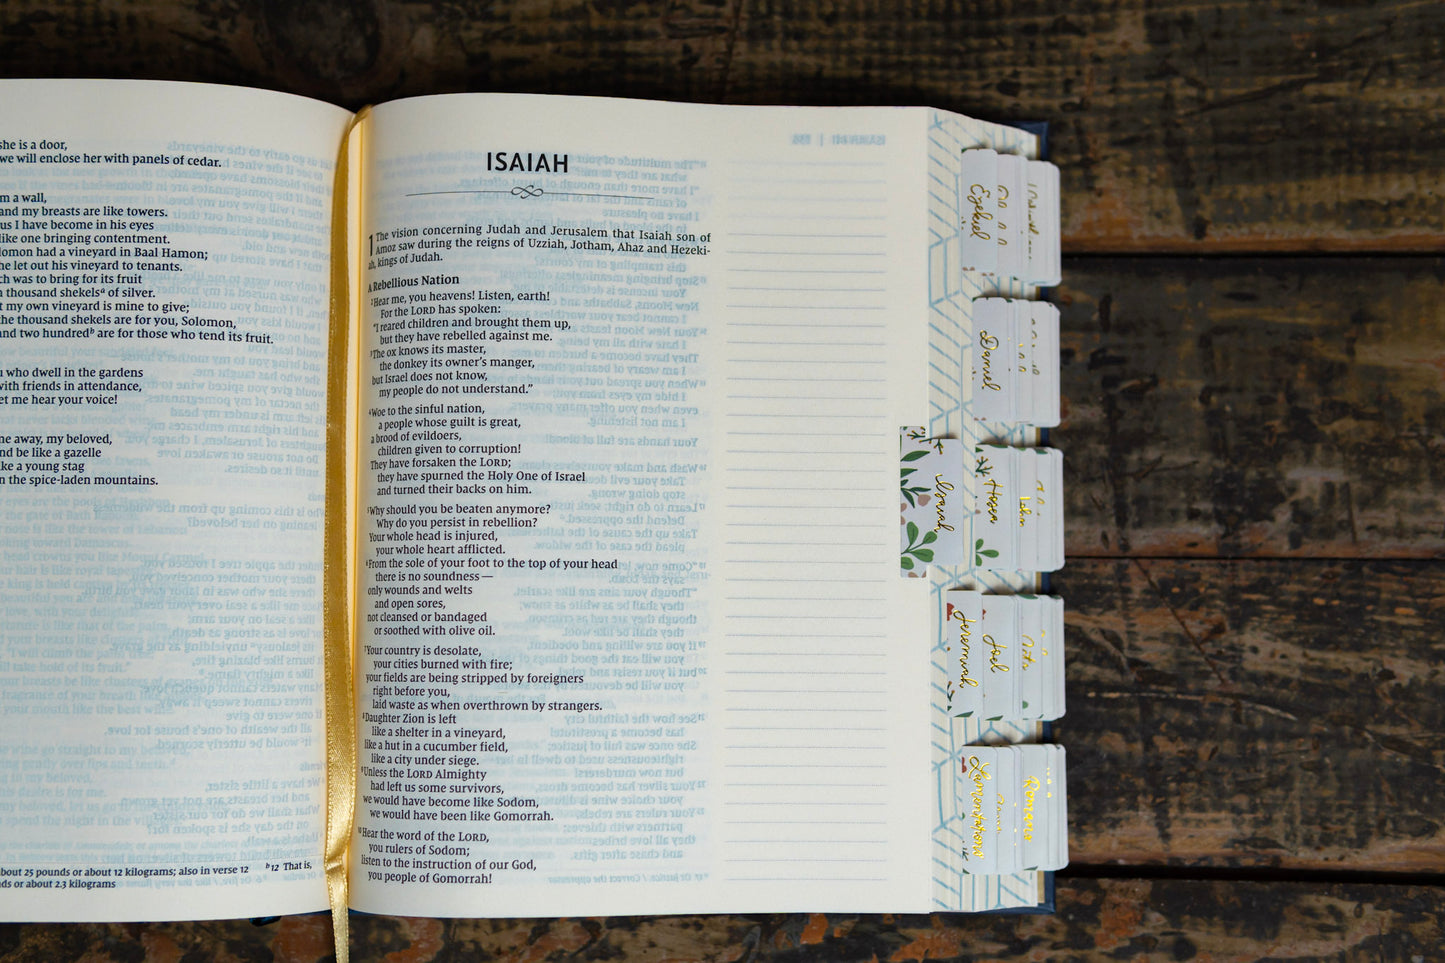 she is a door,
we will enclose her with panels of cedar.
m a wall,
and my breasts are like towers.
us I have become in his eyes
like one bringing contentment.
lomon had a vineyard in Baal Hamon;
he let out his vineyard to tenants.
ch was to bring for its fruit
thousand shekelsᵃ of silver.
t my own vineyard is mine to give;
the thousand shekels are for you, Solomon,
and two hundredᵇ are for those who tend its fruit.
u who dwell in the gardens
with friends in attendance,
et me hear your voice!
me away, my beloved,
nd be like a gazelle
ke a young stag
n the spice-laden mountains.
bout 25 pounds or about 12 kilograms; also in verse 12 ᵇ12 That is,
ds or about 2.3 kilograms
ISAIAH
1 The vision concerning Judah and Jerusalem that Isaiah son of
Amoz saw during the reigns of Uzziah, Jotham, Ahaz and Hezeki-
ah, kings of Judah.
A Rebellious Nation
²Hear me, you heavens! Listen, earth!
For the LORD has spoken:
"I reared children and brought them up,
but they have rebelled against me.
³The ox knows its master,
the donkey its owner's manger,
but Israel does not know,
my people do not understand."
⁴Woe to the sinful nation,
a people whose guilt is great,
a brood of evildoers,
children given to corruption!
They have forsaken the LORD;
they have spurned the Holy One of Israel
and turned their backs on him.
⁵Why should you be beaten anymore?
Why do you persist in rebellion?
Your whole head is injured,
your whole heart afflicted.
⁶From the sole of your foot to the top of your head
there is no soundness—
only wounds and welts
and open sores,
not cleansed or bandaged
or soothed with olive oil.
⁷Your country is desolate,
your cities burned with fire;
your fields are being stripped by foreigners
right before you,
laid waste as when overthrown by strangers.
⁸Daughter Zion is left
like a shelter in a vineyard,
like a hut in a cucumber field,
like a city under siege.
⁹Unless the LORD Almighty
had left us some survivors,
we would have become like Sodom,
we would have been like Gomorrah.
¹⁰Hear the word of the LORD,
you rulers of Sodom;
listen to the instruction of our God,
you people of Gomorrah!
Ezekiel
Daniel
Isaiah
Hosea
John
Jeremiah
Joel
Acts
Lamentations
Romans